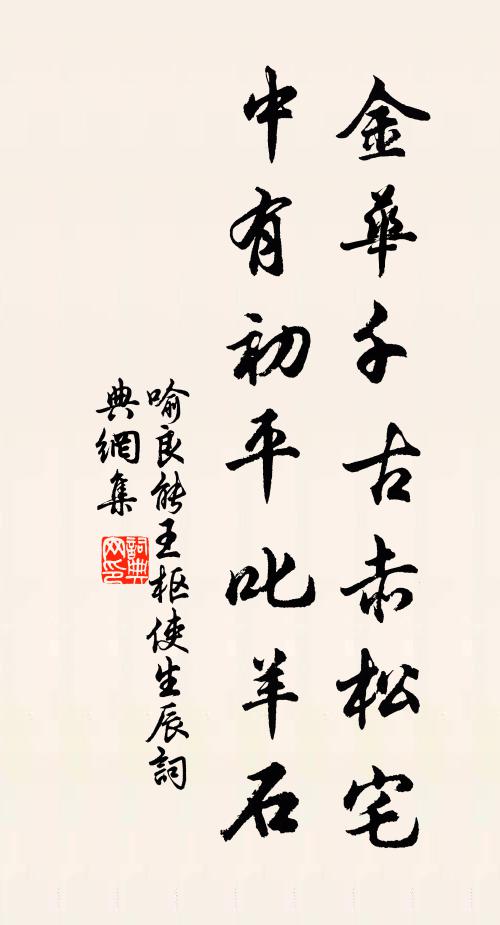 金華千古赤松宅
中有初平叱羊石
喻良能王枢使生辰詞
典網集
詞典
网印